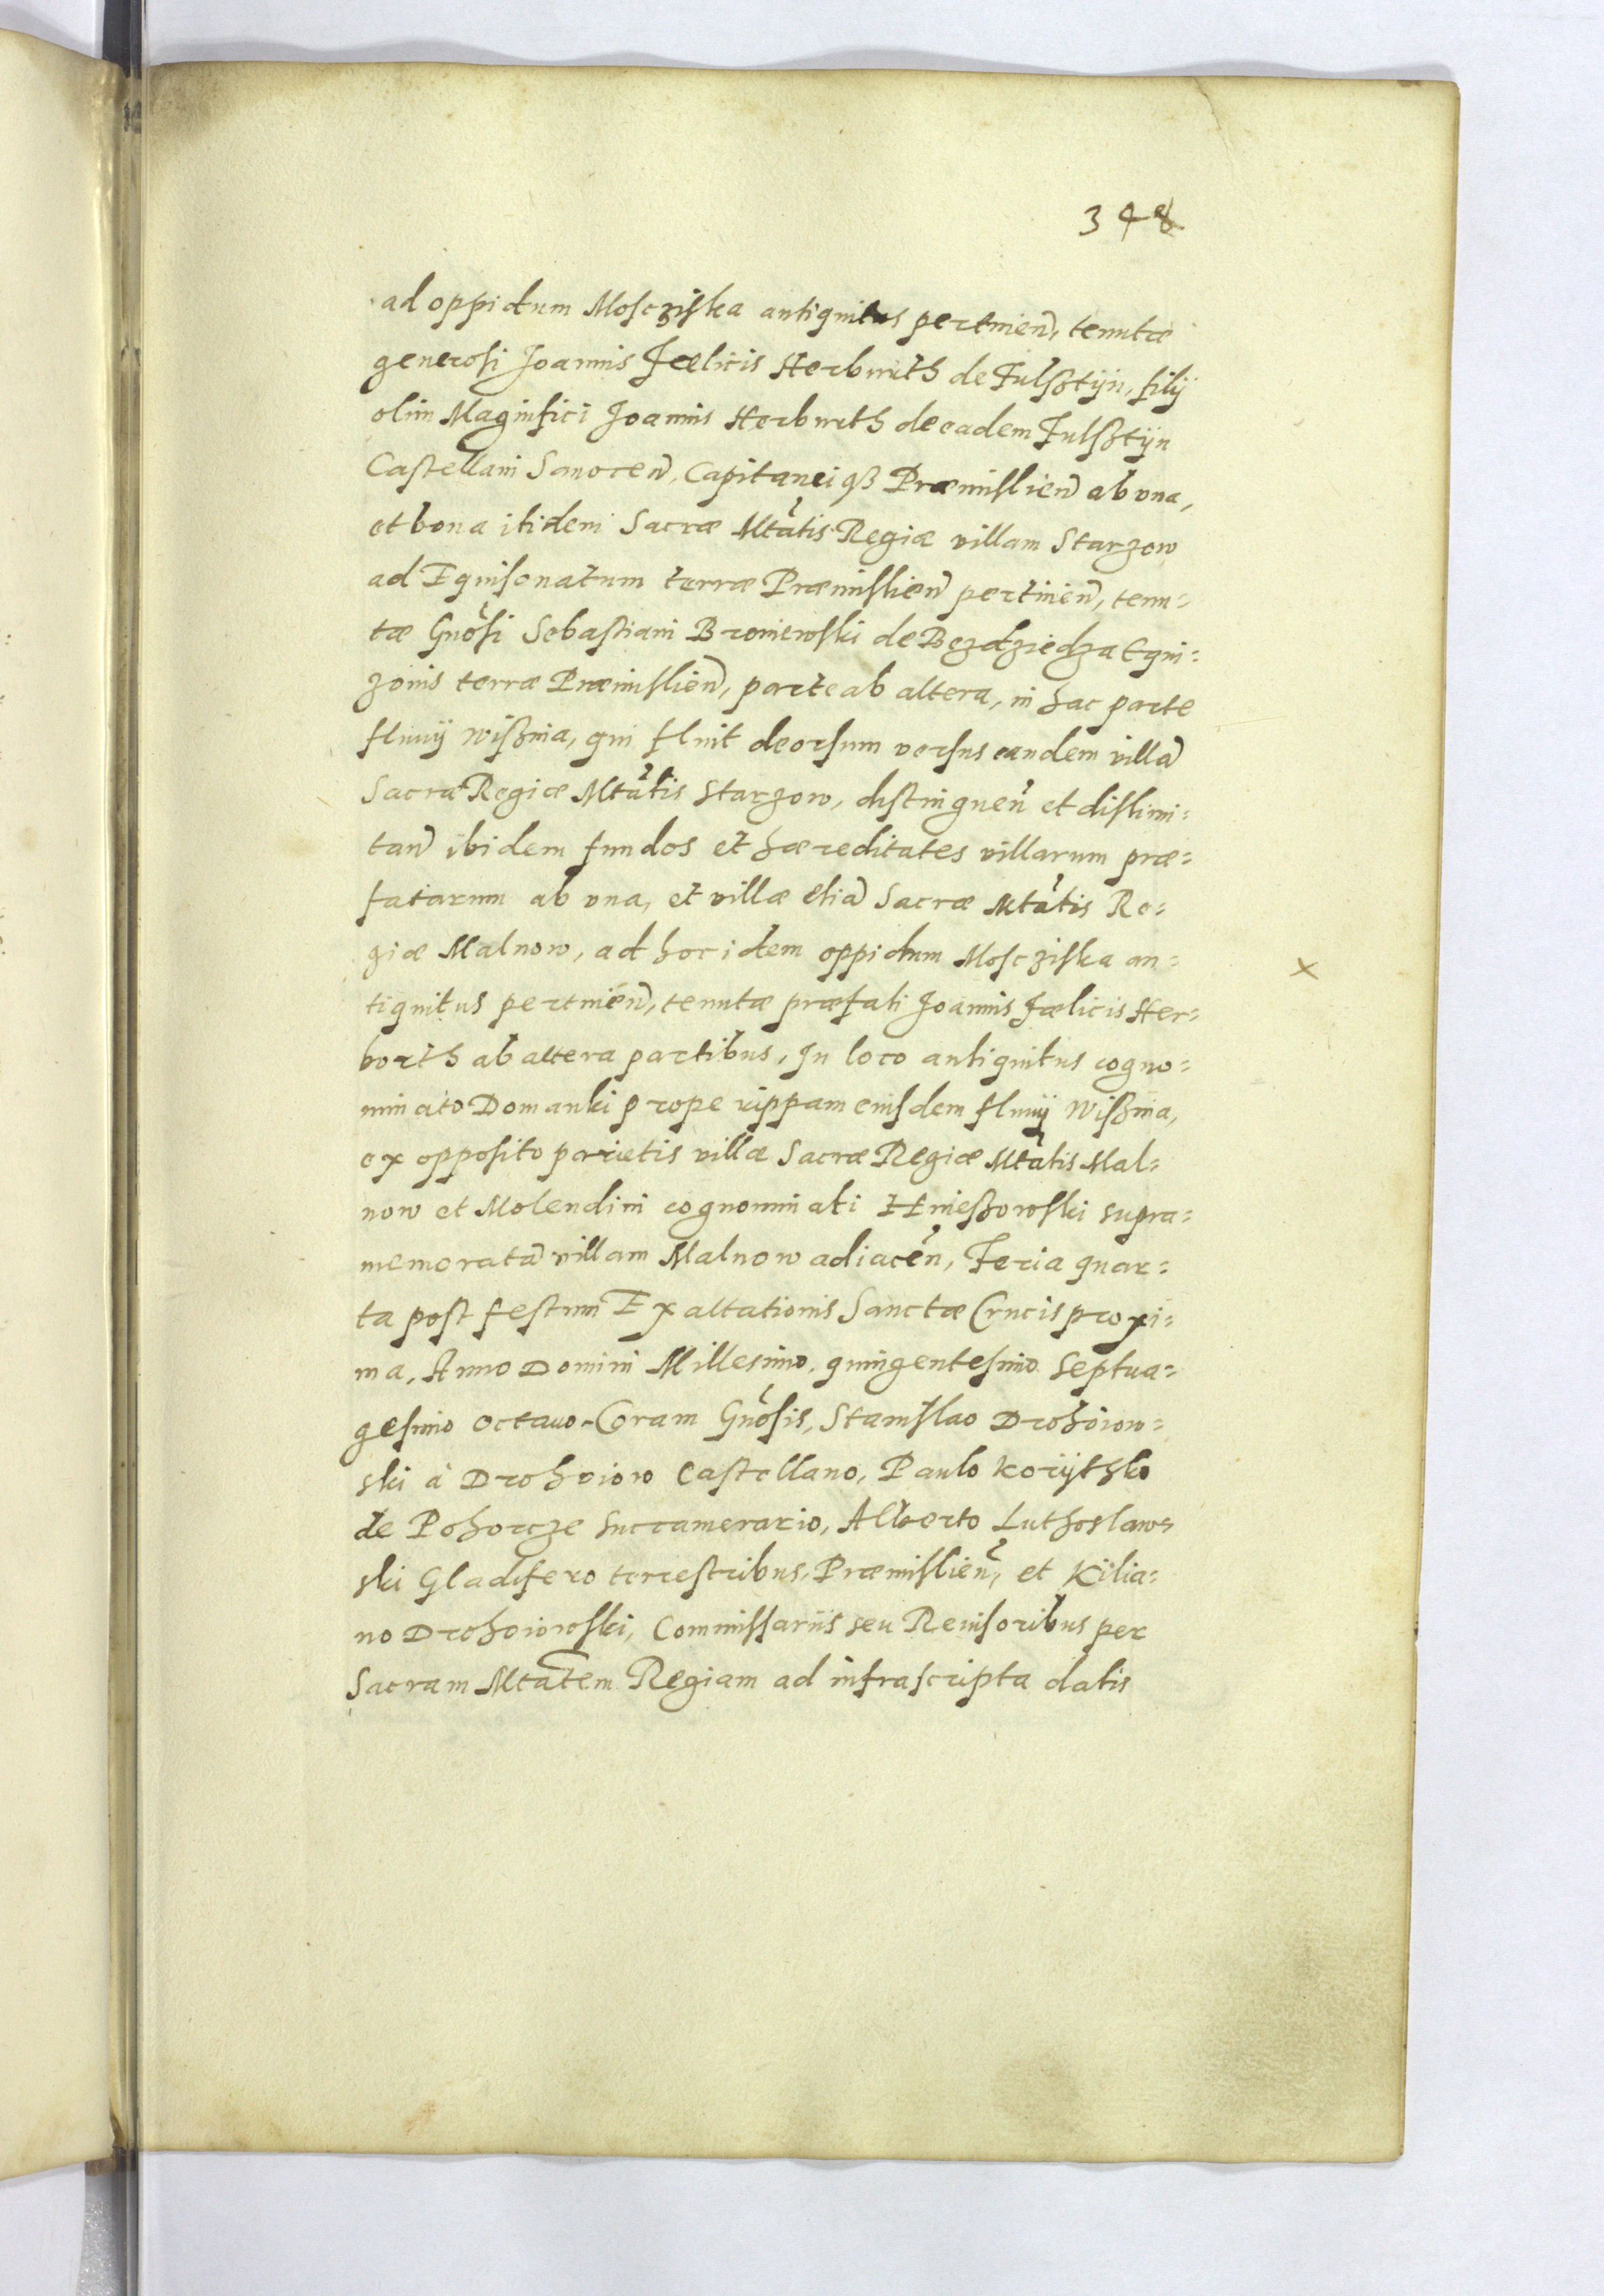 348
ad oppidum Mosczıska antiquitus pertineñ, tenutæ
generosi Joannis Fælicis Herburth de Fulsztÿn, filÿ
olim Magnifici Joannis Herburth de eadem Fulsztÿn
Castellani Sanoceñ, Capitaneiqз Præmislieñ ab vna,
et bona itidem Sacræ Mtãtis Regiæ villam Starzow
ad Equisonatum terræ Præmislieñ pertineñ, tenu=
tæ Gnõsi Sebastiani Broniewski de Bezdziedza Equi=
zonis terræ Præmislieñ, parte ab altera, in hac parte
fluuÿ Wisznia, qui fluit deorsum versus eandem villã
Sacræ Regiæ Mtãtis Starzow, distingueñ et dislimi=
tañ ibidem fundos et hæreditates villarum præ=
fatarum ab vna, et villæ etiã Sacræ Mtãtis Re=
giæ Malnow, ad hoc idem oppidum Moscziska an=
tiquitus pertineñ, tenutæ præfati Joannis Fælicis Her=
borth ab altera partibus, In loco antiquitus cogno=
minato Domanki prope rippam eiusdem fluuÿ Wisznia,
ex opposito parietis villæ Sacræ Regiæ Mtãtis Mal=
now et Molendini cognominati Hnieszowski supra=
memoratã villam Malnow adiaceñ, Feria quar=
ta post festum Exaltationis Sanctæ Crucis proxi=
ma, Anno Domini Millesimo, quingentesimo Septua=
gesimo octauo. Coram Gnõsis, Stanislao Drohoiow=
ski à Drohoiow Castellano, Paulo Korÿtsko
de Pohorcze Succamerario, Alberto Luthoslaw=
ski Gladifero terrestribus, Præmislieñ, et Kilia=
no Drohoiowski, Commissariis seu Reuisoribus per
Sacram Mtãtem Regiam ad infrascripta datis